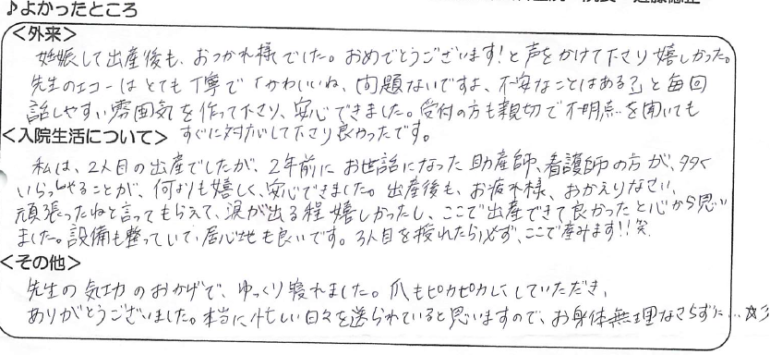 ♪よかったところ
<外来>
妊娠して出産後も、おつかれ様でした。おめでとうございます!と声をかけて下さり嬉しかった。
先生のエコーはとても丁寧で「かわいいね、問題ないですよ、不安なことはある?」と毎回
話しやすい雰囲気を作って下さり、安心できました。受付の方も親切で不明点を聞いても
<入院生活について> すぐに対応して下さり良かったです。
私は、2人目の出産でしたが、2年前にお世話になった助産師、看護師の方が、多く
いらっしゃることが、何よりも嬉しく、安心できました。出産後も、お疲れ様、おかえりなさい、
頑張ったねと言ってもらえて、涙が出る程嬉しかったし、ここで出産できて良かったと心から思い
ました。設備も整っていて、居心地も良いです。3人目を授れたら必ず、ここで産みます!!笑
<その他>
先生の気功のおかげで、ゆっくり寝れました。爪もピカピカにしていただき、
ありがとうございました。本当に忙しい日々を送られていると思いますので、お身体無理なさらずに…☆彡